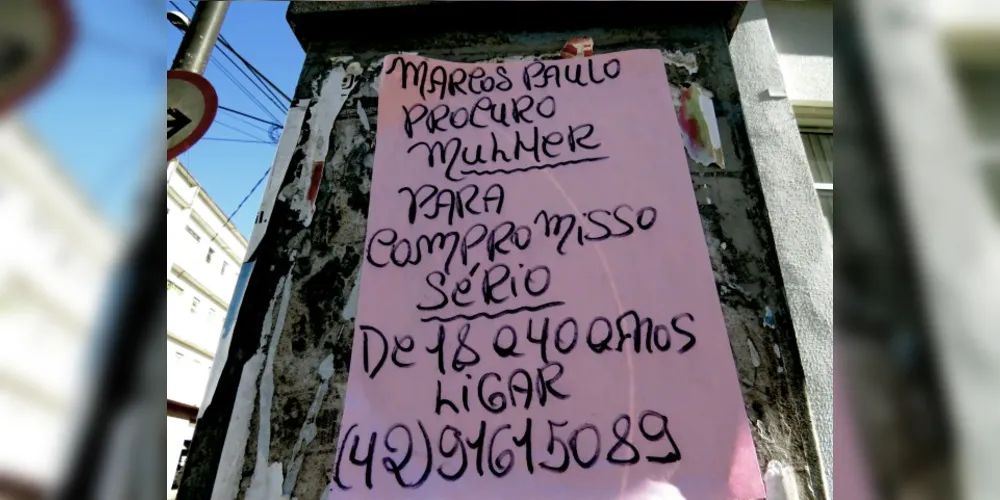 MARCOS PAULO
PROCURO
MULHER
PARA
COMPROMISSO
SÉRIO
De 18 a 40 aNos
LIGAR
(42)91615089